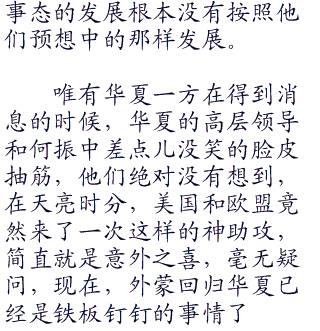 事态的发展根本没有按照他
们预想中的那样发展。
唯有华夏一方在得到消
息的时候，华夏的高层领导
和何振中差点儿没笑的脸皮
抽筋，他们绝对没有想到，
在天亮时分，美国和欧盟竟
然来了一次这样的神助攻，
简直就是意外之喜，毫无疑
问，现在，外蒙回归华夏已
经是铁板钉钉的事情了